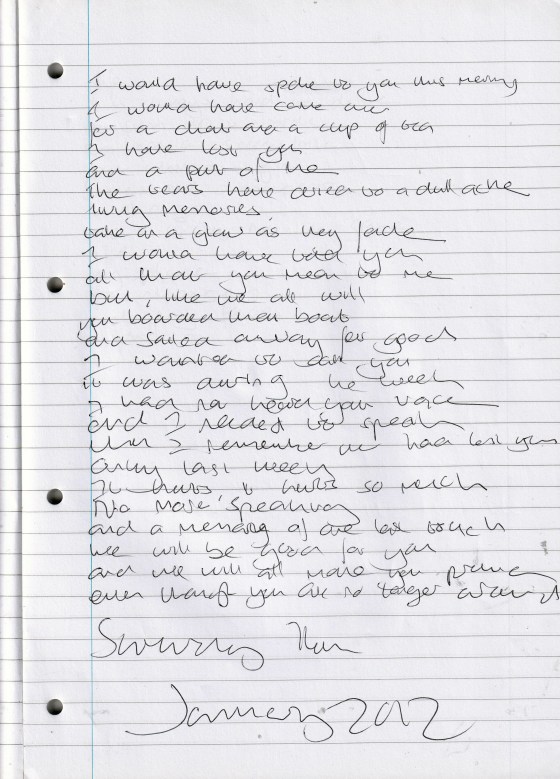 I would have spoke to you this morning
I would have come over
for a chat and a cup of tea
I have lost you
and a part of me
the tears have dried to a dull ache
living memories
take on a glow as they fade
I would have told you
all that you mean to me
but, like we all will
you boarded that boat
and sailed away for good
I wanted to call you
it was during the week
I had not heard your voice
and I needed to speak
then I remember we had lost you
only last week
It hurts, it hurts so much
No more speaking
and a memory of one last touch
we will be good for you
and we will all make you proud
even though you are no longer around
January 2012